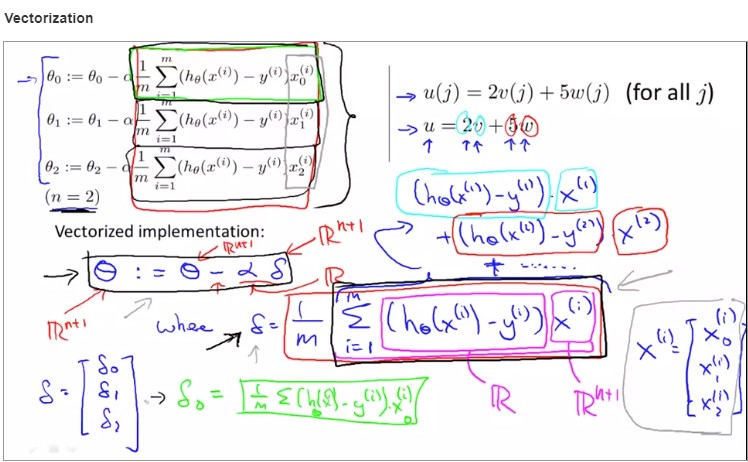 Vectorization
θ₀ := θ₀ − α 1/m ∑ᵢ₌₁ᵐ (hθ(x⁽ⁱ⁾) − y⁽ⁱ⁾)x₀⁽ⁱ⁾
θ₁ := θ₁ − α 1/m ∑ᵢ₌₁ᵐ (hθ(x⁽ⁱ⁾) − y⁽ⁱ⁾)x₁⁽ⁱ⁾
θ₂ := θ₂ − α 1/m ∑ᵢ₌₁ᵐ (hθ(x⁽ⁱ⁾) − y⁽ⁱ⁾)x₂⁽ⁱ⁾
(n = 2)
→ u(j) = 2v(j) + 5w(j) (for all j)
→ u = 2v + 5w
↑ ↑↑ ↑↑
(hθ(x⁽¹⁾) − y⁽¹⁾) · x⁽¹⁾
+ (hθ(x⁽²⁾) − y⁽²⁾) · x⁽²⁾
+ ......
Vectorized implementation:
ℝⁿ⁺¹ ℝⁿ⁺¹
→ θ := θ − α δ
ℝⁿ⁺¹ ℝ
where δ = 1/m ∑ᵢ₌₁ᵐ (hθ(x⁽ⁱ⁾) − y⁽ⁱ⁾) x⁽ⁱ⁾
ℝ ℝⁿ⁺¹
x⁽ⁱ⁾ = [x₀⁽ⁱ⁾ x₁⁽ⁱ⁾ x₂⁽ⁱ⁾]
δ = [δ₀ δ₁ δ₂] → δ₀ = 1/m ∑ (hθ(x⁽ⁱ⁾) − y⁽ⁱ⁾) · x₀⁽ⁱ⁾